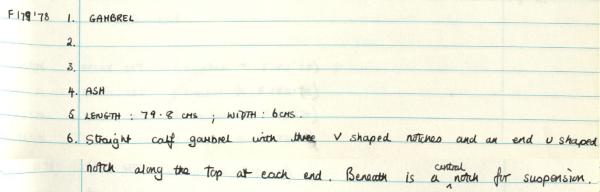 F179'78 1. GAMBREL
2.
3.
4. ASH
5 LENGTH : 79.8 CMS ; WIDTH : 6 CMS.
6. Straight calf gambrel with three V shaped notches and an end U shaped
notch along the top at each end. Beneath is a central notch for suspension.